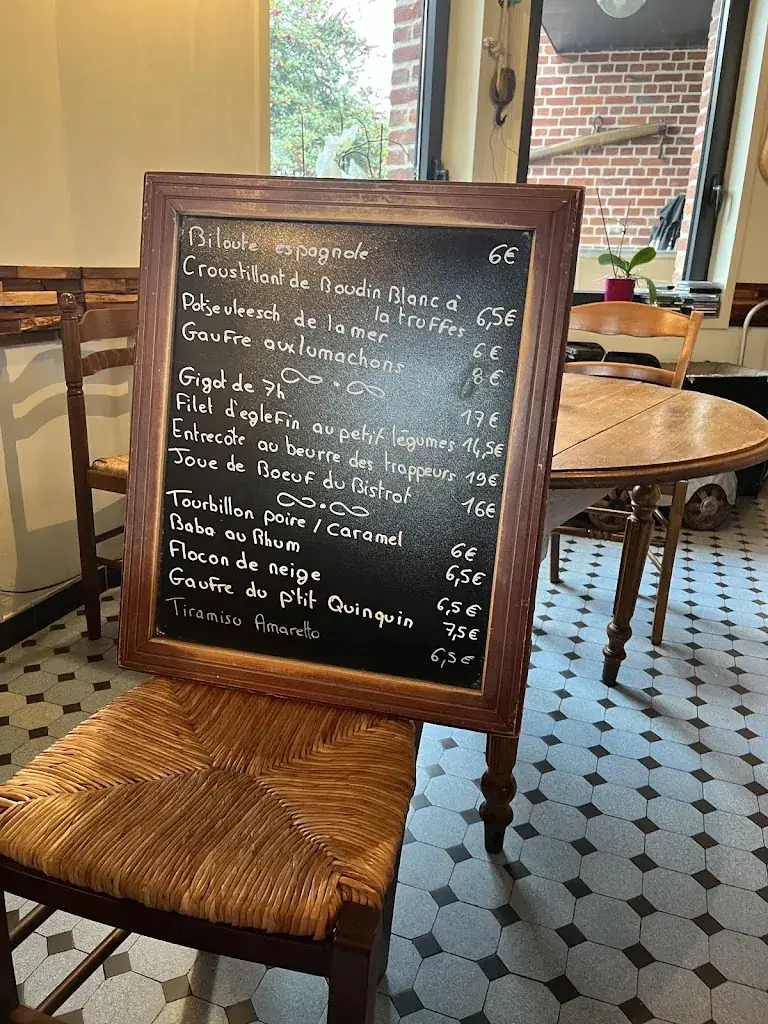 Biloute espagnole 6€
Croustillant de Boudin Blanc à
la truffes 6,5€
Potjevleesch de la mer 6€
Gaufre aux lumachons 8€
Gigot de 7h 17€
Filet d'eglefin au petit légumes 14,5€
Entrecôte au beurre des trappeurs 19€
Joue de Boeuf du Bistrot 16€
Tourbillon poire / Caramel 6€
Baba au Rhum 6,5€
Flocon de neige 6,5€
Gaufre du p'tit Quinquin 7,5€
Tiramisu Amaretto 6,5€